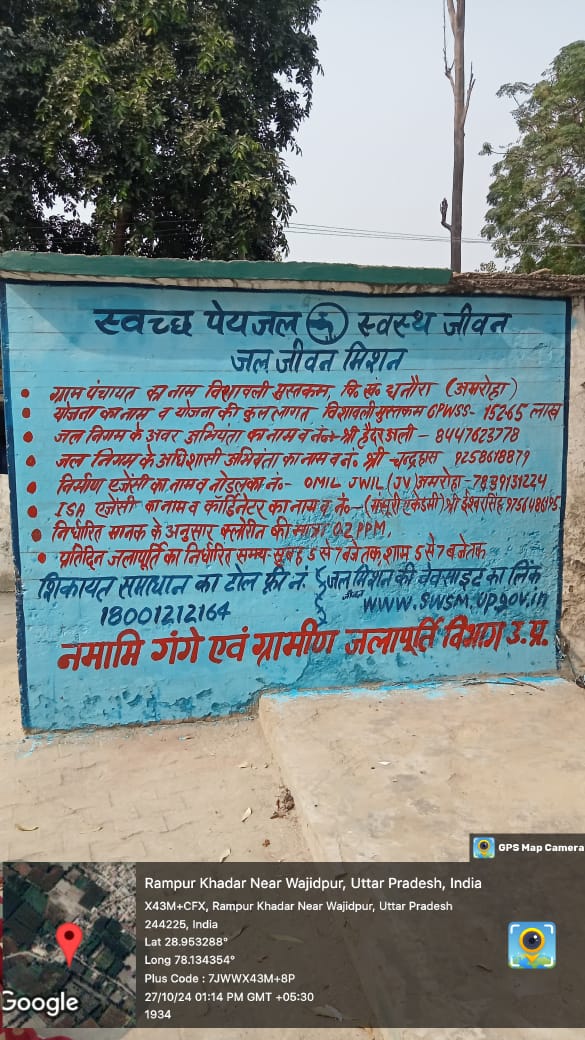 स्वच्छ पेयजल स्वस्थ जीवन
जल जीवन मिशन
• ग्राम पंचायत का नाम विशावली मुस्तकम, वि० खं० धनौरा (अमरोहा)
• योजना का नाम व योजना की कुल लागत विशावली मुस्तकम GPWSS- 152.65 लाख
• जल निगम के अवर अभियंता का नाम व नं०- श्री हैदर अली - 8447623778
• जल निगम के अधिशासी अभियंता का नाम व नं० श्री चन्द्रहास 9258618879
• निर्माण एजेंसी का नाम व नोडल का नं०- OMIL JWIL (JV) अमरोहा - 7839131224
• ISA एजेंसी का नाम व कॉर्डिनेटर का नाम व नं०- (मंसूरी एकेडमी) श्री ईश्वर सिंह
• निर्धारित मानक के अनुसार क्लोरीन की मात्रा 0.2 PPM.
• प्रतिदिन जलापूर्ति का निर्धारित समय- सुबह 5 से 7 बजे तक, शाम 5 से 7 बजे तक
शिकायत समाधान का टोल फ्री नं.
18001212164
जल जीवन मिशन की वेबसाइट का लिंक
www.swsm.up.gov.in
नमामि गंगे एवं ग्रामीण जलापूर्ति विभाग उ.प्र.
GPS Map Camera
Rampur Khadar Near Wajidpur, Uttar Pradesh, India
X43M+CFX, Rampur Khadar Near Wajidpur, Uttar Pradesh
244225, India
Lat 28.953288°
Long 78.134354°
Plus Code : 7JWWX43M+8P
27/10/24 01:14 PM GMT +05:30
1934
Google